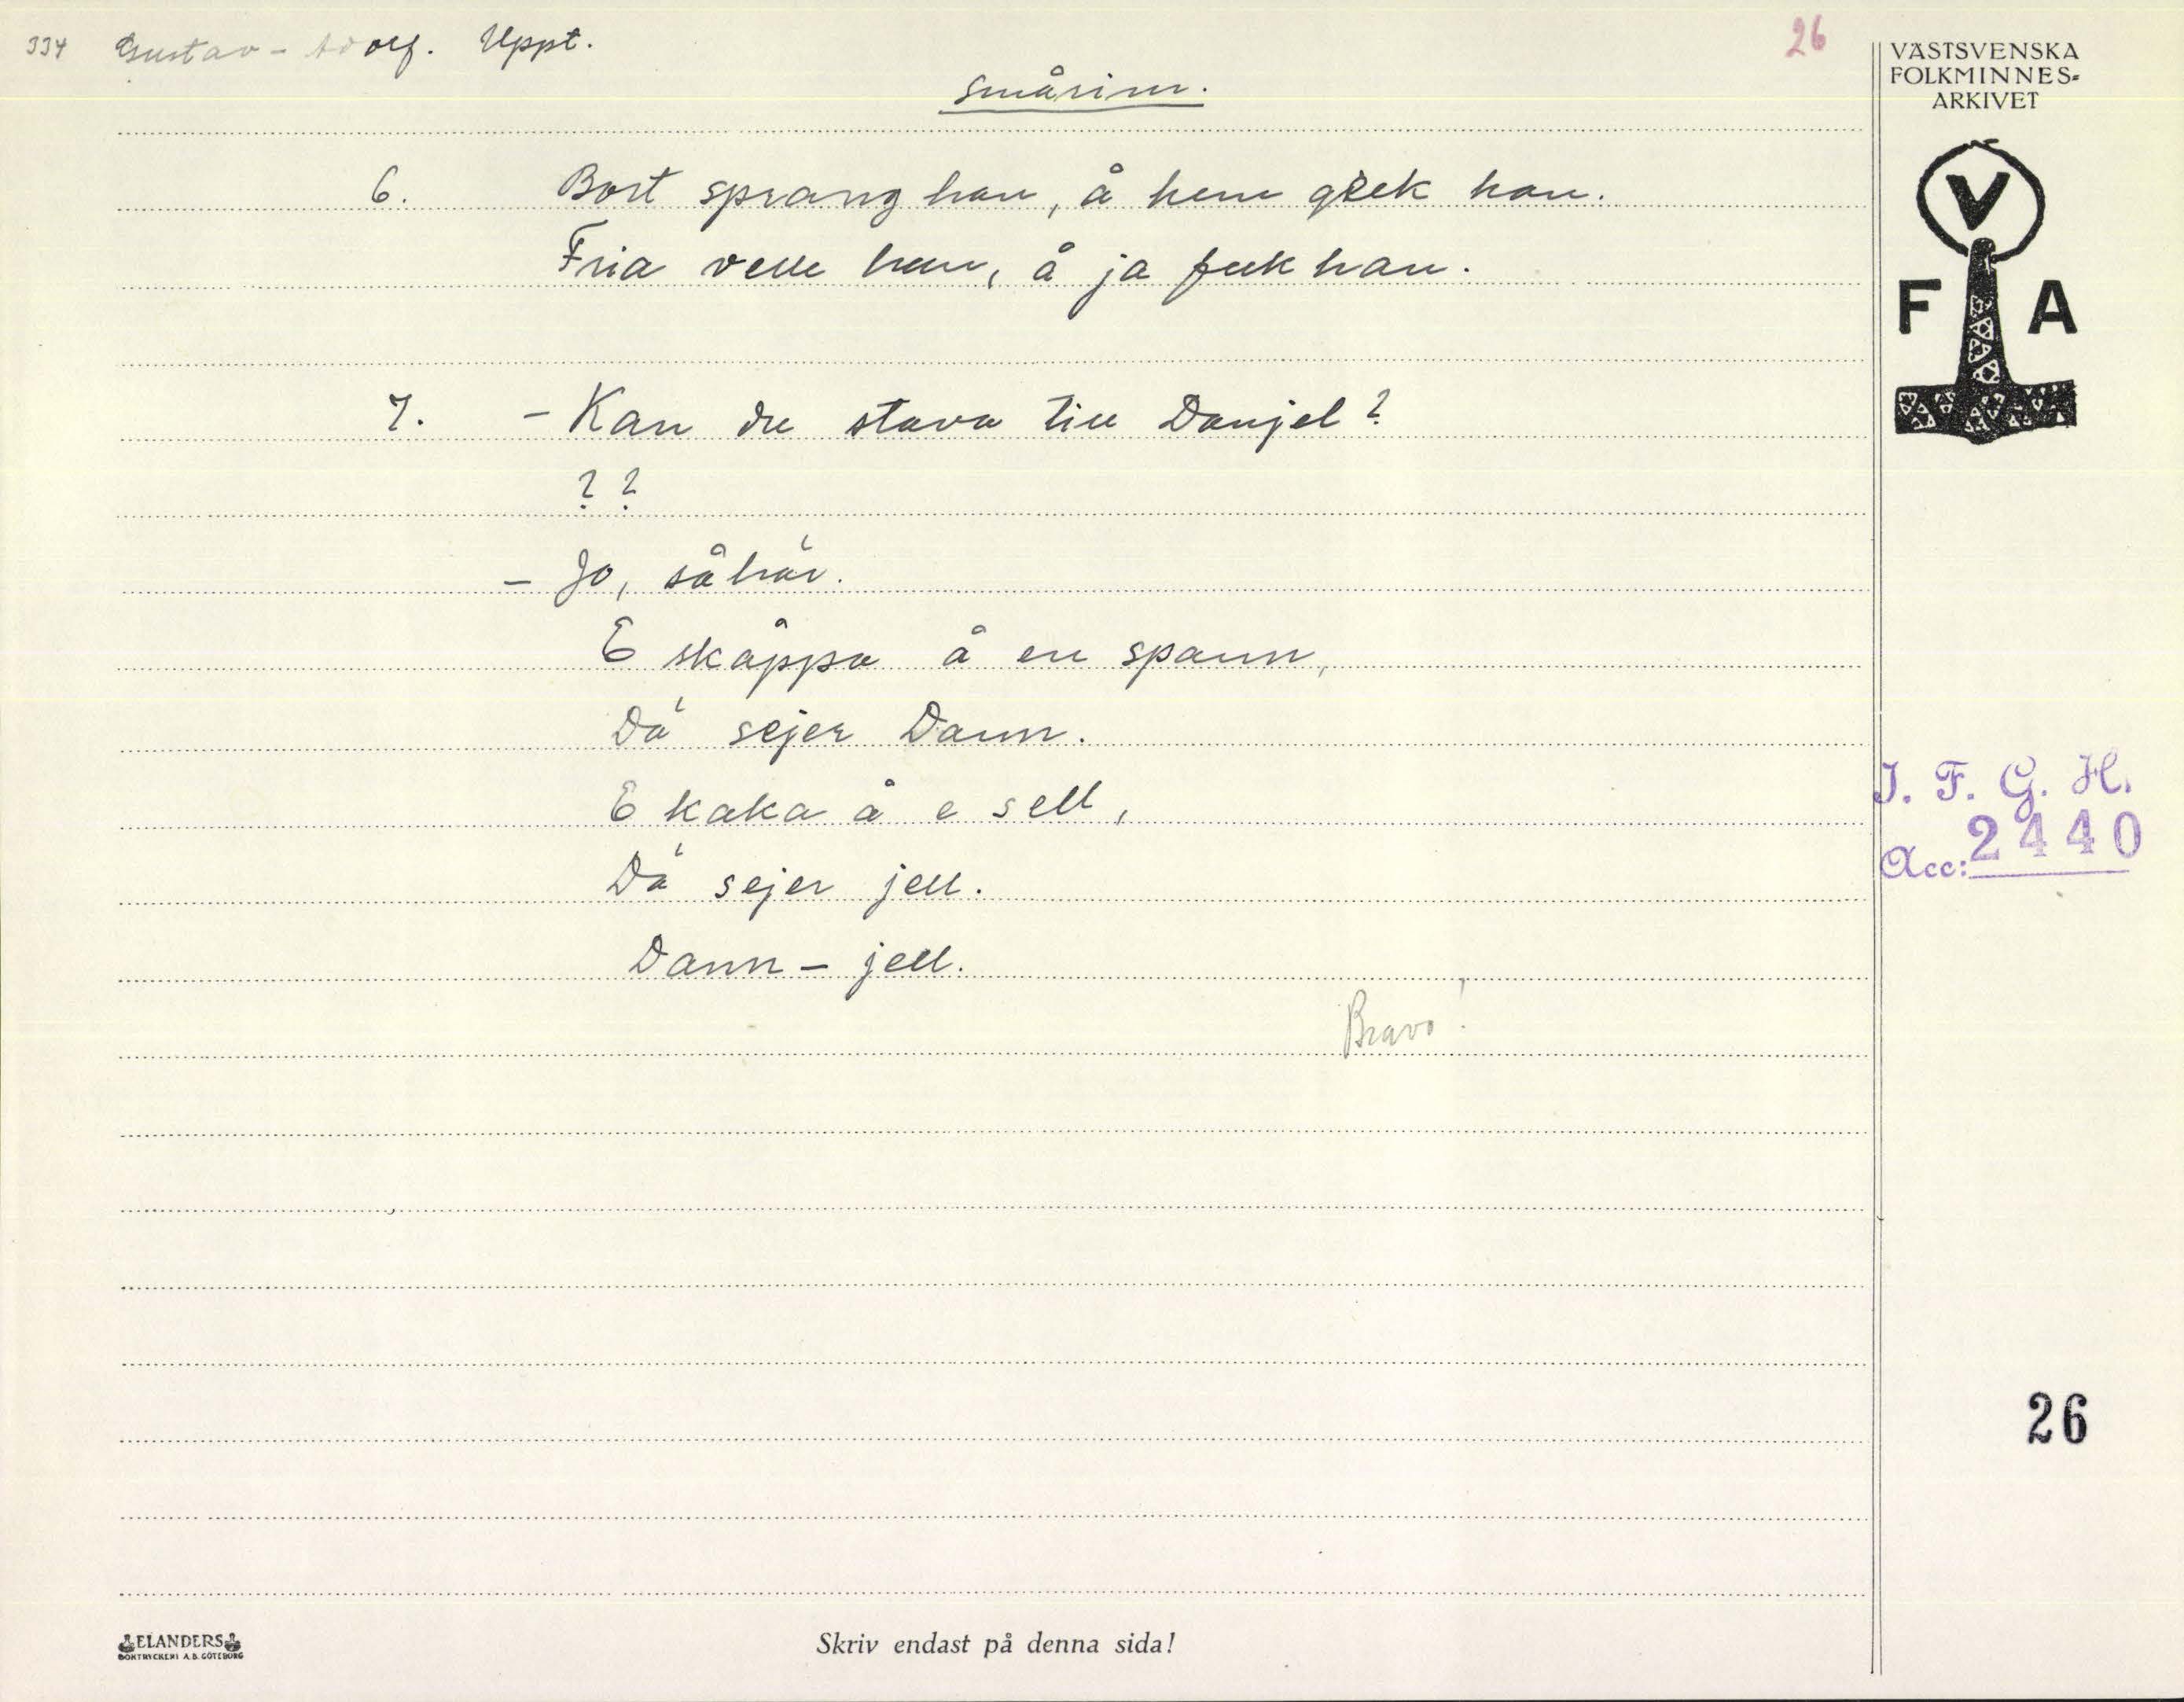 334 Gustav-Adolf. Uppt.
26
Smårim.
6. Bort sprang han, å hem gick han.
Fria velle han, å ja feck han.
7. - Kan du stava till Danjel?
? ?
- Jo, såhär.
E skåppa å en spann,
Dä sejer Dann.
E kaka å e sell,
Dä sejer jell.
Dann - jell.
Bravo!
VÄSTSVENSKA
FOLKMINNES-
ARKIVET
V
F A
I. F. G. H.
Acc: 2440
26
ELANDERS
BOKTRYCKERI A.B. GÖTEBORG
Skriv endast på denna sida!